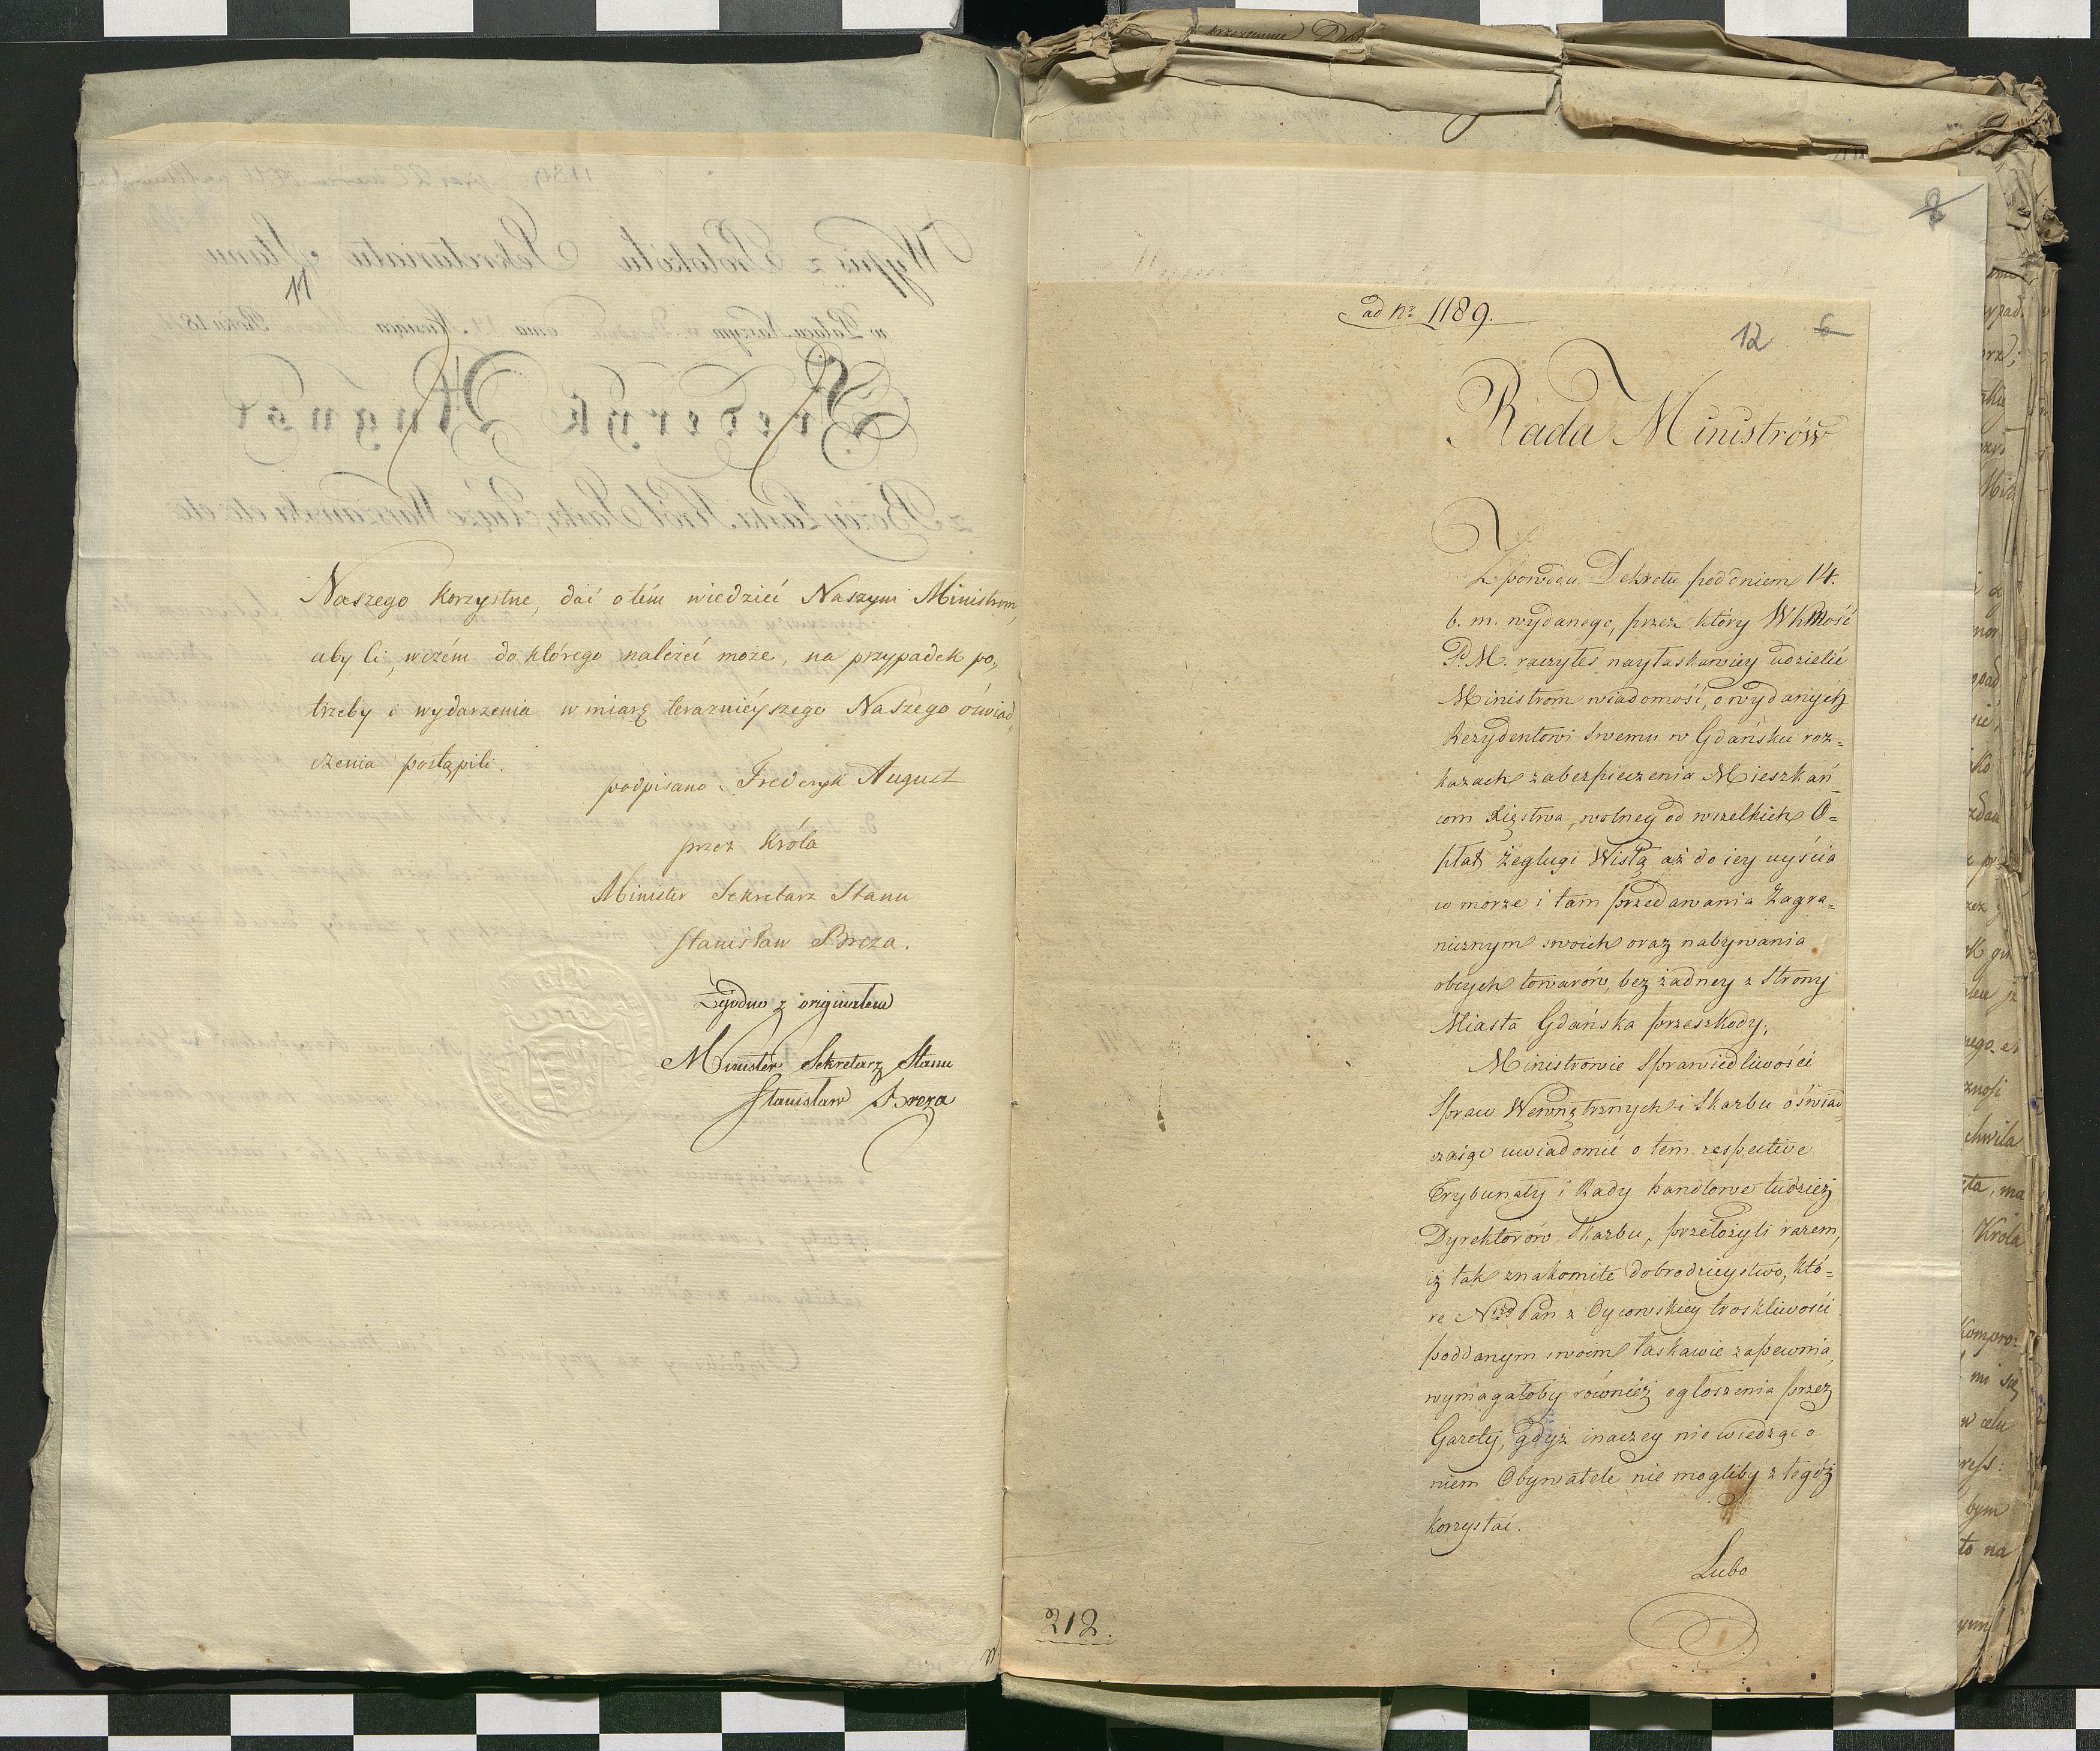 11
Naszego korzystne, dać o tém wiedzieć Naszym Ministrom,
aby ci, w czém do którego należeć może, na przypadek po„
trzeby i wydarzenia w miarę teraznieyszego Naszego oświad„
czenia postąpili.
podpisano: Frederyk August
przez Króla
Minister Sekretarz Stanu
Stanisław Breza.
Zgodno z originałem
Minister Sekretarz Stanu
Stanisław Breza
ad nr 1189.
12 6
Rada Ministrów
Z powodu Dekretu pod dniem 14.
b. m. wydanego, przez który WKMość
P. M. raczyłeś nayłaskawiey udzielić
Ministrom wiadomość, o wydanych
Rezydentowi swemu w Gdańsku roz=
kazach zabezpieczenia Mieszkań=
com Xięstwa, wolney od wszelkich O=
płat żeglugi Wisłą aż do iey uyścia
w morze i tam przedawania Zagra=
nicznym swoich oraz nabywania
obcych towarów, bez żadney z strony
Miasta Gdańska przeszkody;
Ministrowie Sprawiedliwości
Spraw Wewnętrznych i Skarbu oświad=
czaiąc uwiadomić o tem respective
Trybunały i Rady handlowe tudzież
Dyrektorów Skarbu, przełożyli razem,
iż tak znakomite dobrodzieystwo, któ=
re Pan z Oycowskiey troskliwości
poddanym swoim łaskawie zapewnia,
wymagałoby również ogłoszenia przez
Gazety, gdyż inaczey nie wiedząc o
niem Obywatele nie mogliby z tegóż
korzystać.
Lubo
212.